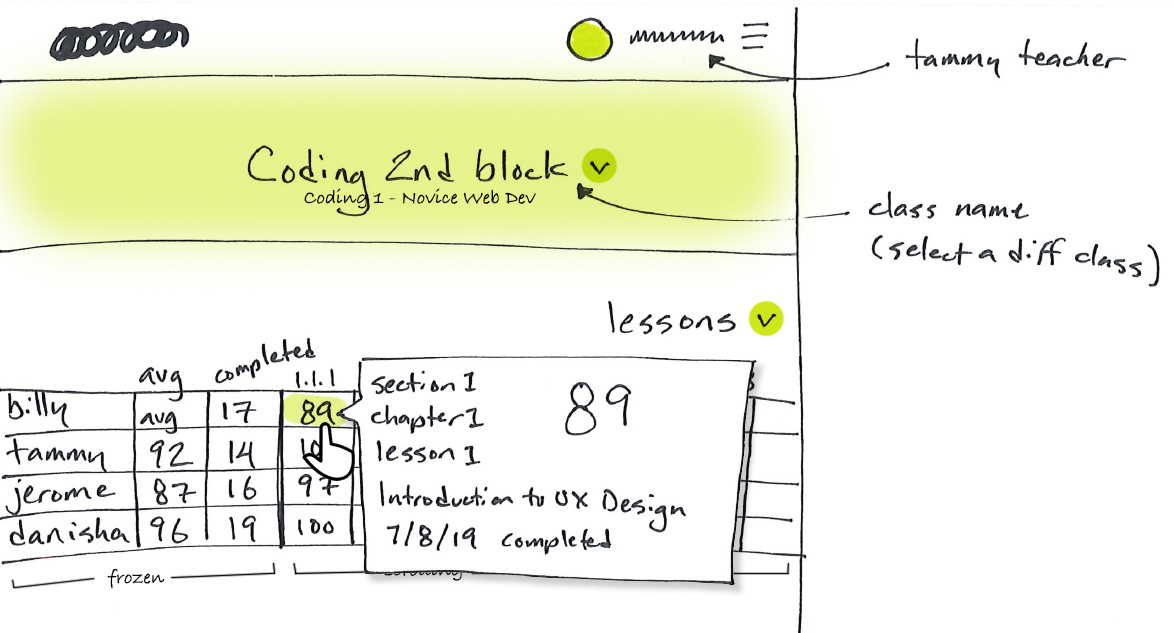 tammy teacher
Coding 2nd block v
Coding 1 - Novice Web Dev
class name
(select a diff class)
lessons v
avg completed 1.1.1
billy avg 17 89
tammy 92 14
jerome 87 16 97
danisha 96 19 100
section 1
chapter 1
lesson 1
89
Introduction to UX Design
7/8/19 completed
frozen